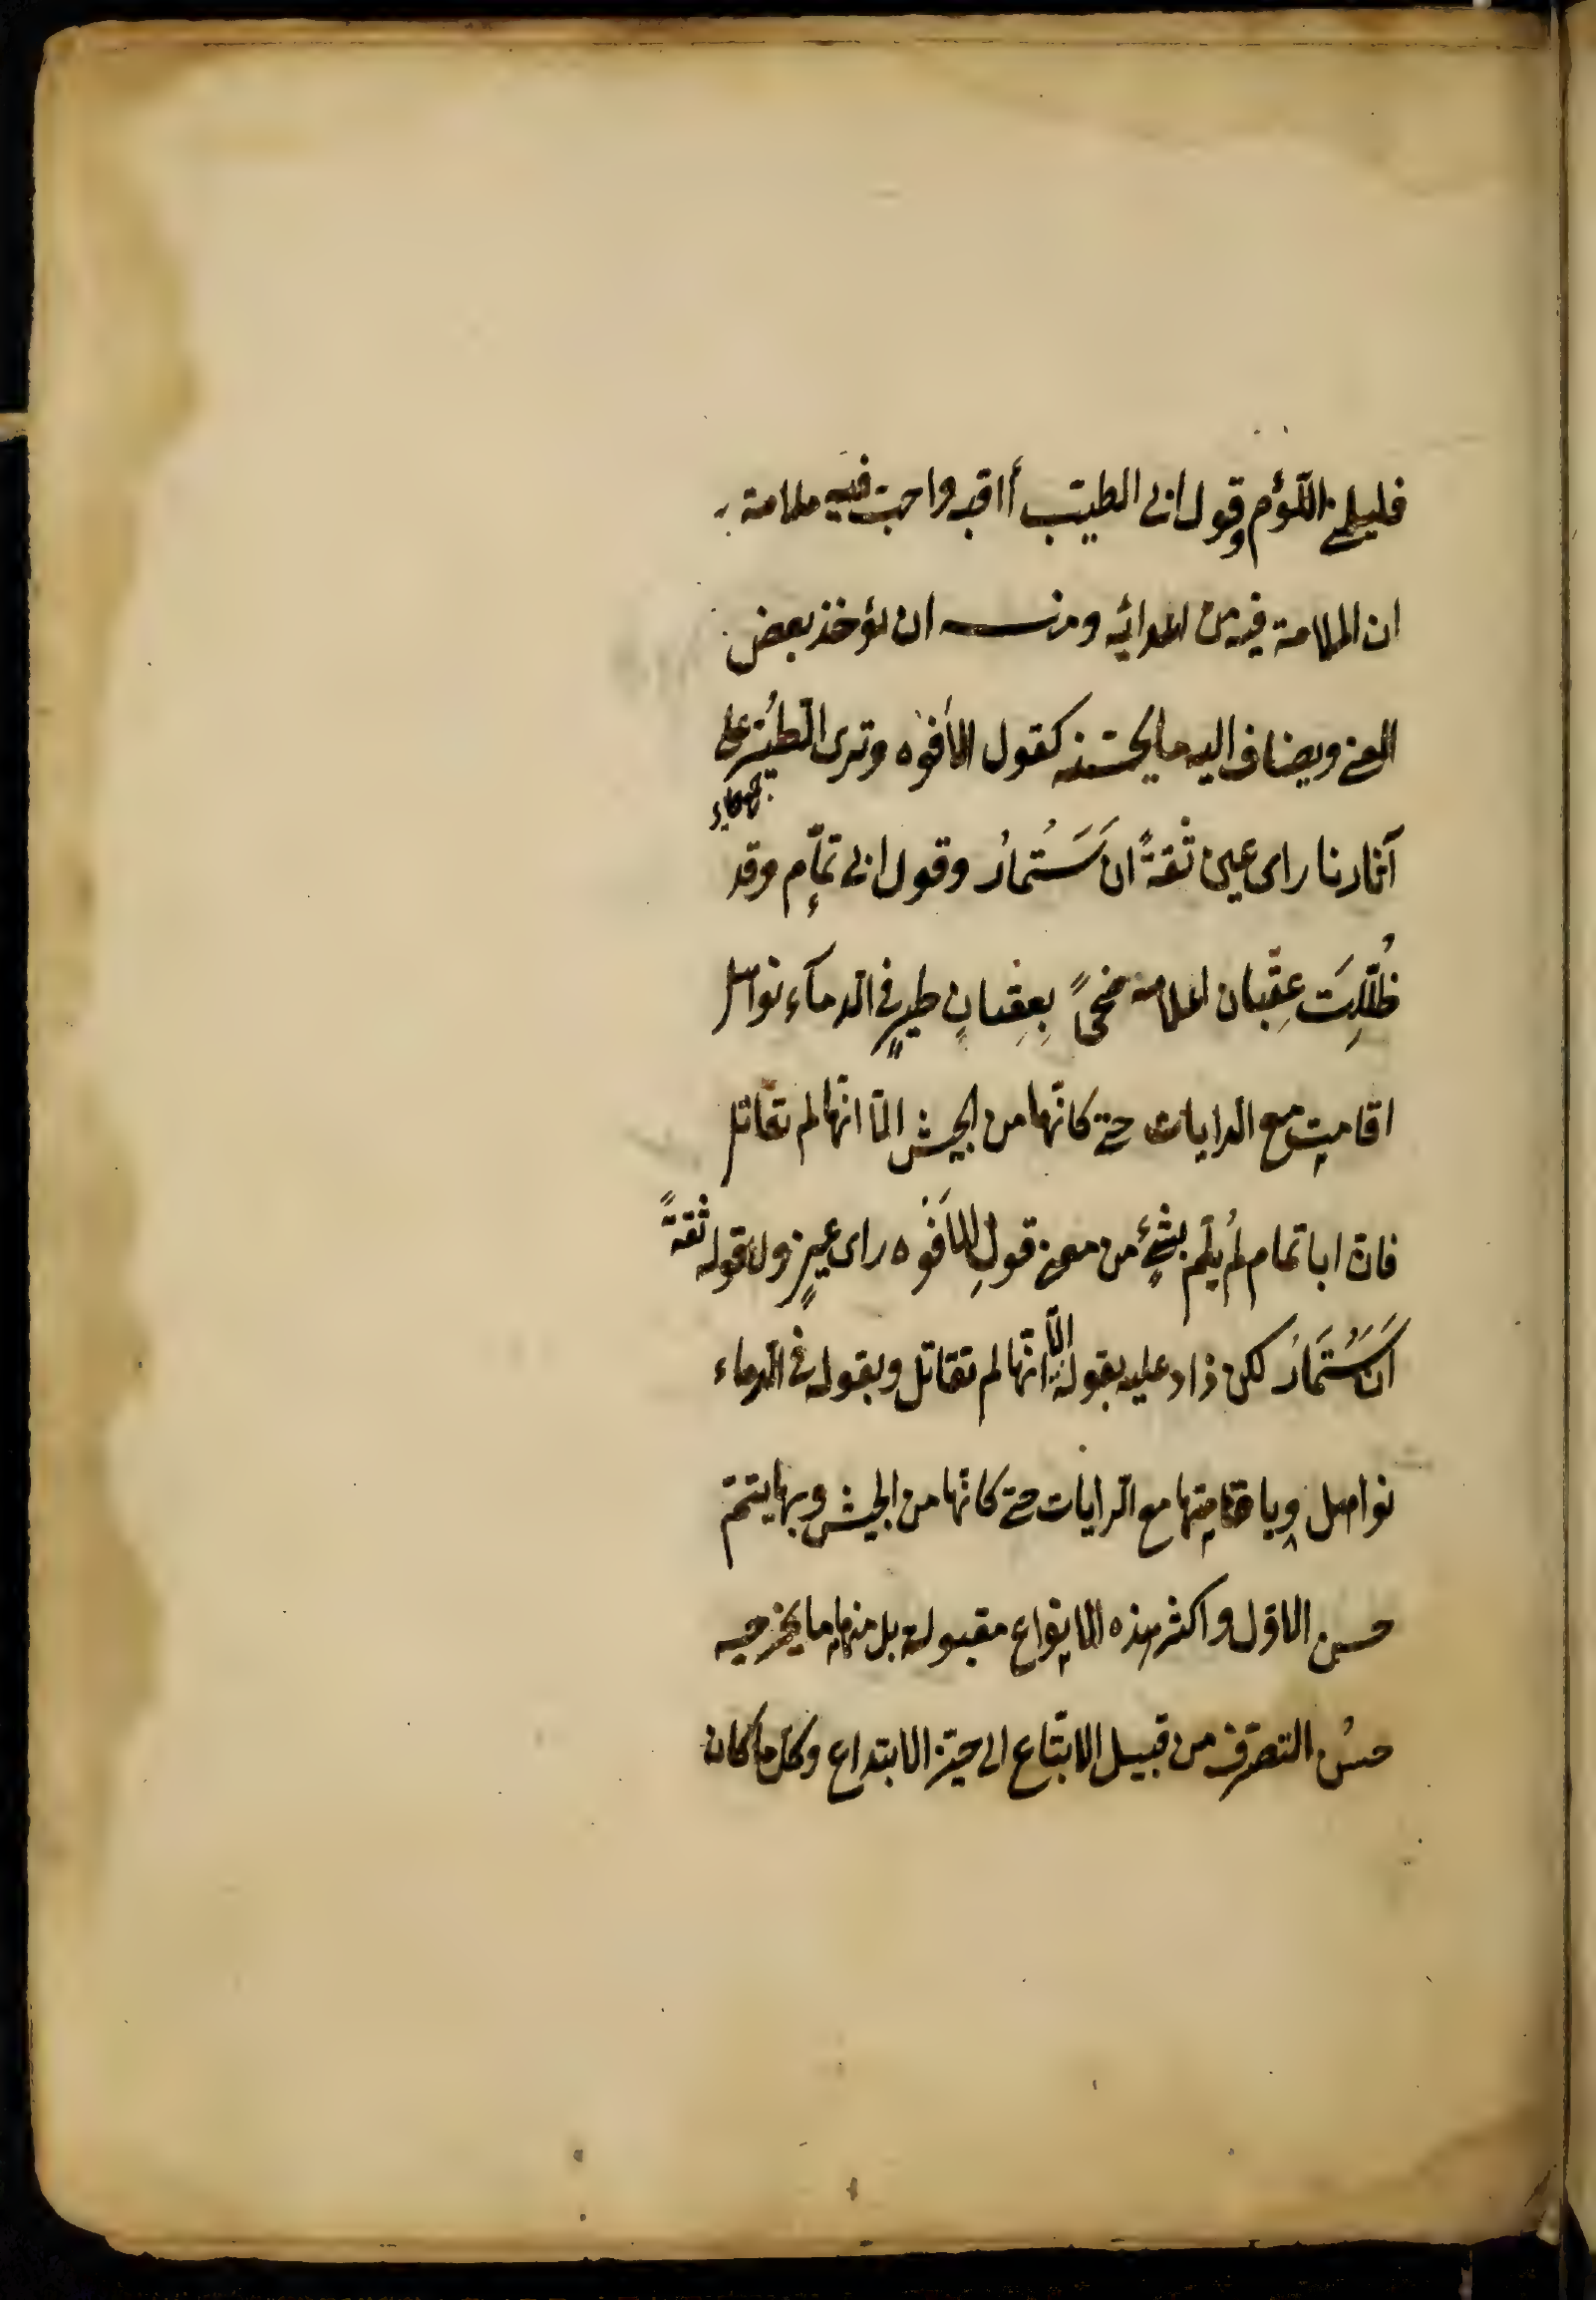 فليلمنى اللّوُّم وقول ابى الطيّب أاحبه واحبّ فيه ملامة
ان الملامة فيه من اعدائه ومنه ان يؤخذ بعض
المعنى ويضاف اليه ما يحسّنه كقول الأفوه وترى الطَّيْرَ على
آثارنا راى عين ثقةً ان سَتُمارُ وقول ابى تمّام وقد
ظُلِّلَت عِقبان اعلامه ضحىً بِعِقبانِ طيرٍ فى الدمآء نواهل
اقامت مع الرايات حتى كانّها من الجيش الّا انّها لم تقاتل
فانّ ابا تمام لم يُلِمّ بشئٍ من معنى قولِ الأفوه راى عينٍ ولا قوله ثقةً
اَنْ سَتُمَارُ لكن زاد عليه بقوله الّا انّها لم تقاتل وبقوله فى الدماء
نواهل وباقامتها مع الرايات حتى كانّها من الجيش وبها يتمّ
حسن الاوّل واكثر هذه الانواع مقبولة بل منها ما يخرجه
حسْن التصرّف من قبيل الاتّباع الى حيّز الابتداع وكلّ ما كان